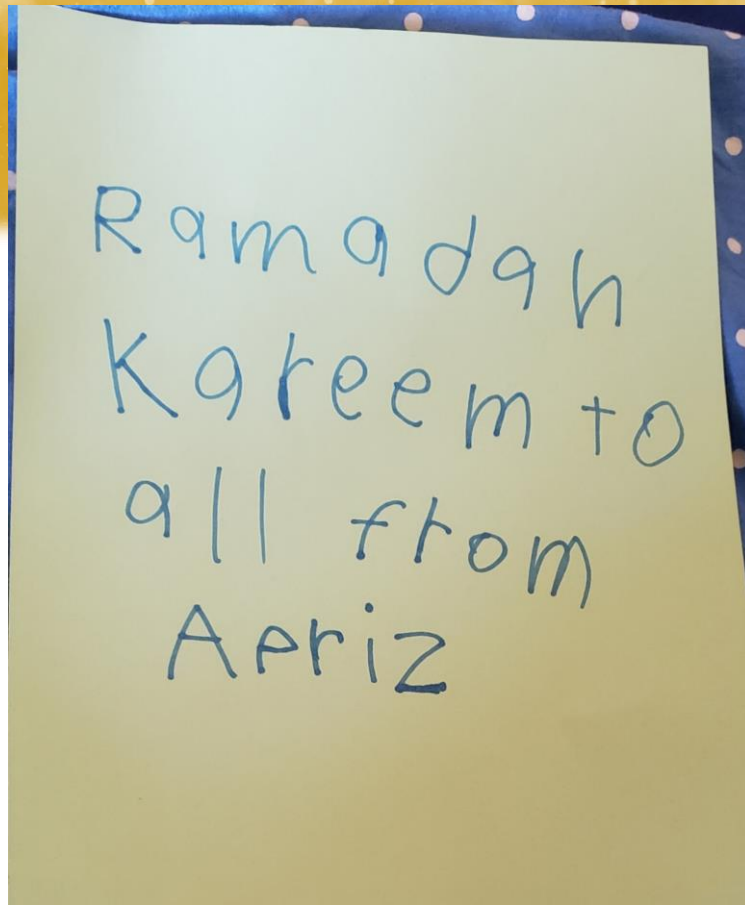 Ramadan
Kareem to
all from
Aeriz